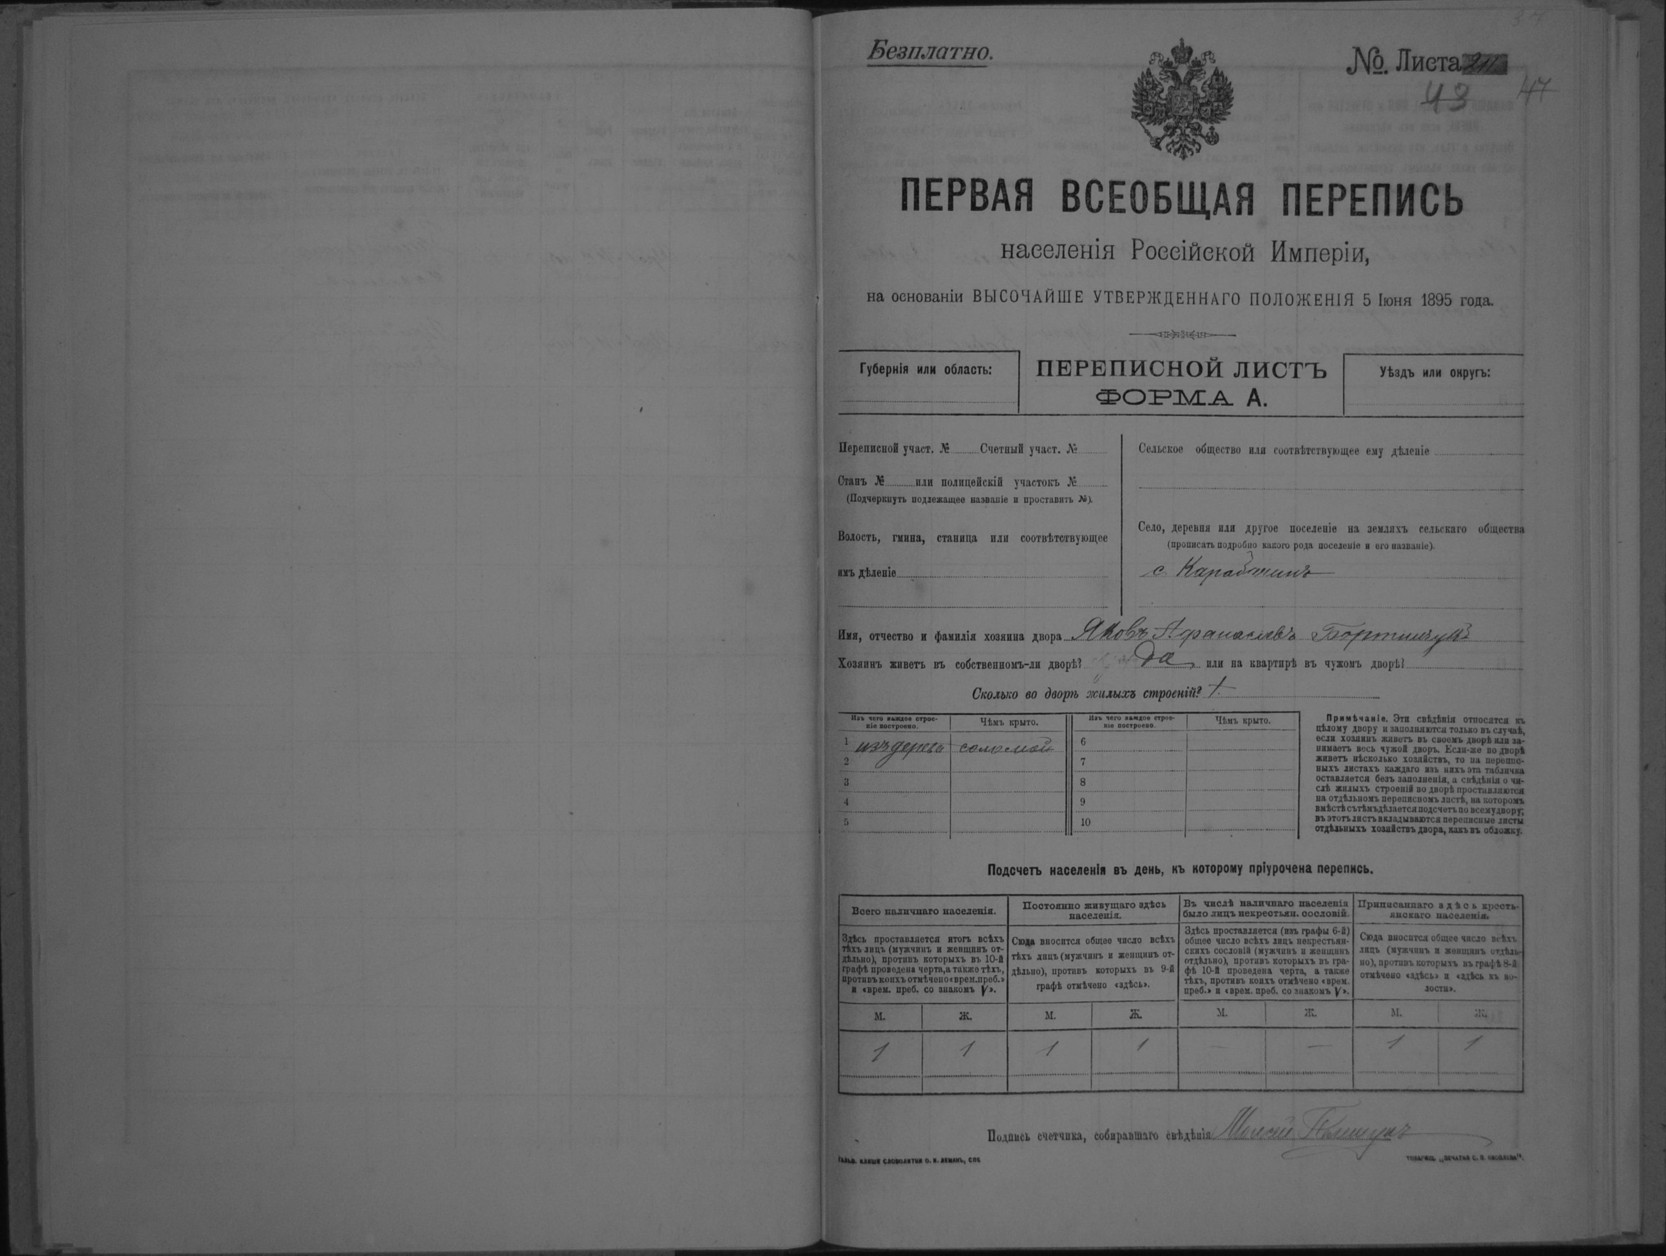 Безплатно.
№. Листа
43 47
ПЕРВАЯ ВСЕОБЩАЯ ПЕРЕПИСЬ
населенія Россійской Имперіи,
на основаніи ВЫСОЧАЙШЕ УТВЕРЖДЕННАГО ПОЛОЖЕНІЯ 5 Іюня 1895 года.
Губернія или область:
ПЕРЕПИСНОЙ ЛИСТЪ
ФОРМА А.
Уѣздъ или округъ:
Переписной участ. № Счетный участ. №
Станъ № или полицейскій участокъ №
(Подчеркнуть подлежащее названіе и проставить №).
Волость, гмина, станица или соотвѣтствующее
имъ дѣленіе
Сельское общество или соотвѣтствующее ему дѣленіе
Село, деревня или другое поселеніе на земляхъ сельскаго общества
(прописать подробно какого рода поселеніе и его названіе).
с. Карабачинъ
Имя, отчество и фамилія хозяина двора Яковъ Афанасіевъ Бортничукъ
Хозяинъ живетъ въ собственномъ-ли дворѣ? да или на квартирѣ въ чужомъ дворѣ?
Сколько во дворѣ жилыхъ строеній? 1
Изъ чего каждое строе-
ніе построено.
Чѣмъ крыто.
Изъ чего каждое строе-
ніе построено.
Чѣмъ крыто.
1 изъ дерева соломой 6
2 7
3 8
4 9
5 10
Примѣчаніе. Эти свѣдѣнія относятся къ
цѣлому двору и заполняются только въ случаѣ,
если хозяинъ живетъ въ своемъ дворѣ или за-
нимаетъ весь чужой дворъ. Если-же во дворѣ
живетъ нѣсколько хозяйствъ, то на перепис-
ныхъ листахъ каждаго изъ нихъ эта табличка
оставляется безъ заполненія, а свѣдѣнія о чи-
слѣ жилыхъ строеній во дворѣ проставляются
на отдѣльномъ переписномъ листѣ, на которомъ
вмѣстѣ съ тѣмъ дѣлается подсчетъ по всему двору;
въ этотъ листъ вкладываются переписные листы
отдѣльныхъ хозяйствъ двора, какъ въ обложку.
Подсчетъ населенія въ день, къ которому пріурочена перепись.
Всего наличнаго населенія.
Здѣсь проставляется итогъ всѣхъ
тѣхъ лицъ (мужчинъ и женщинъ от-
дѣльно), противъ которыхъ въ 10-й
графѣ проведена черта, а также тѣхъ,
противъ коихъ отмѣчено «врем. преб.»
и «врем. преб. со знакомъ V».
Постоянно живущаго здѣсь
населенія.
Сюда вносится общее число всѣхъ
тѣхъ лицъ (мужчинъ и женщинъ от-
дѣльно), противъ которыхъ въ 9-й
графѣ отмѣчено «здѣсь».
Въ числѣ наличнаго населенія
было лицъ некрестьян. сословій.
Здѣсь проставляется (изъ графы 6-й)
общее число всѣхъ лицъ некрестьян-
скихъ сословій (мужчинъ и женщинъ
отдѣльно), противъ которыхъ въ гра-
фѣ 10-й проведена черта, а также
тѣхъ, противъ коихъ отмѣчено «врем.
преб.» и «врем. преб. со знакомъ V».
Приписаннаго здѣсь кресть-
янскаго населенія.
Сюда вносится общее число всѣхъ
лицъ (мужчинъ и женщинъ отдѣль-
но), противъ которыхъ въ графѣ 8-й
отмѣчено «здѣсь» и «здѣсь въ во-
лости».
М. Ж. М. Ж. М. Ж. М. Ж.
1 1 1 1 — — 1 1
Подпись счетчика, собиравшаго свѣдѣнія